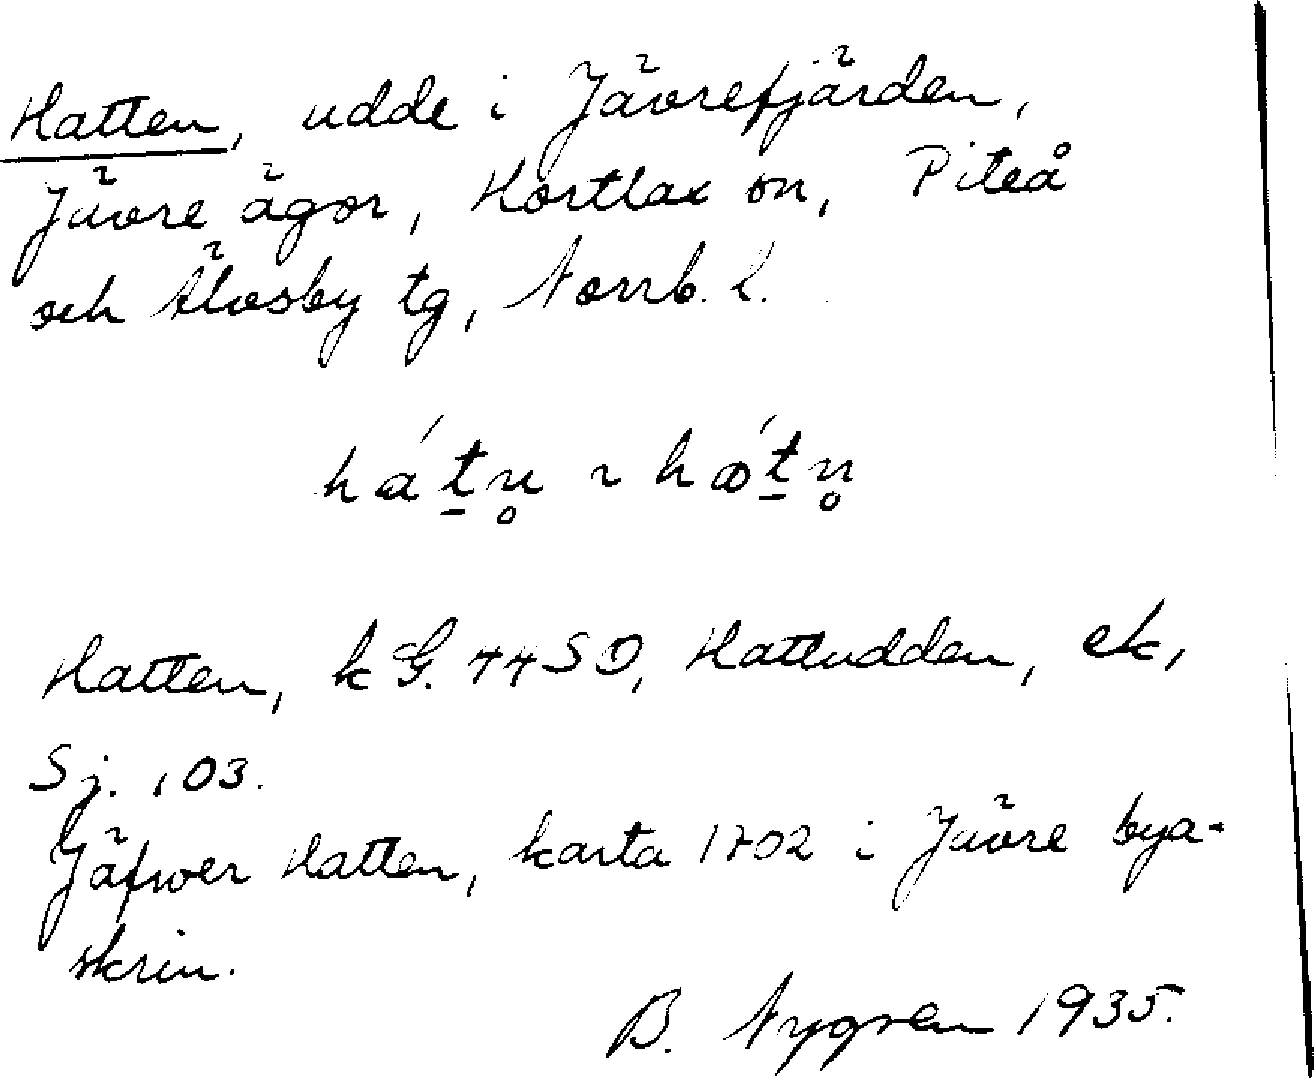 Hatten, udde i Jävrefjärden,
Jävre ägor, Hortlax sn, Piteå
och Älvsby tg, Norrb. l.
há t̲n̥ ~ hó t̲n̥
Hatten, kG. 44 SO, Hattudden, ek,
Sj. 103.
Jäfwer Hatten, karta 1702 i Jävre bya-
skrin.
B. Nygren 1935.